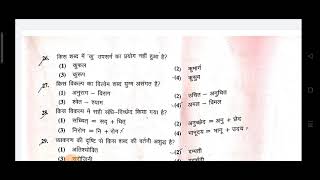 26. किस शब्द में 'कु' उपसर्ग का प्रयोग नहीं हुआ है?
(1) कुफल (2) कुमार्ग
(3) कुरूप (4) कुसुम
27. किस विकल्प का विलोम शब्द युग्म असंगत है?
(1) अनुराग – विराग (2) उचित – अनुचित
(3) श्वेत – श्याम (4) अमल – विमल
28. किस विकल्प में सही संधि-विच्छेद किया गया है?
(1) सच्चित् = सद् + चित् (2) अनुच्छेद = अनु + छेद
(3) निरोग = नि + रोग (4) भानूदय = भानू + उदय
29. व्याकरण की दृष्टि से किस शब्द की वर्तनी अशुद्ध है?
(1) अतिश्योक्ति (2) दम्पती
(3)